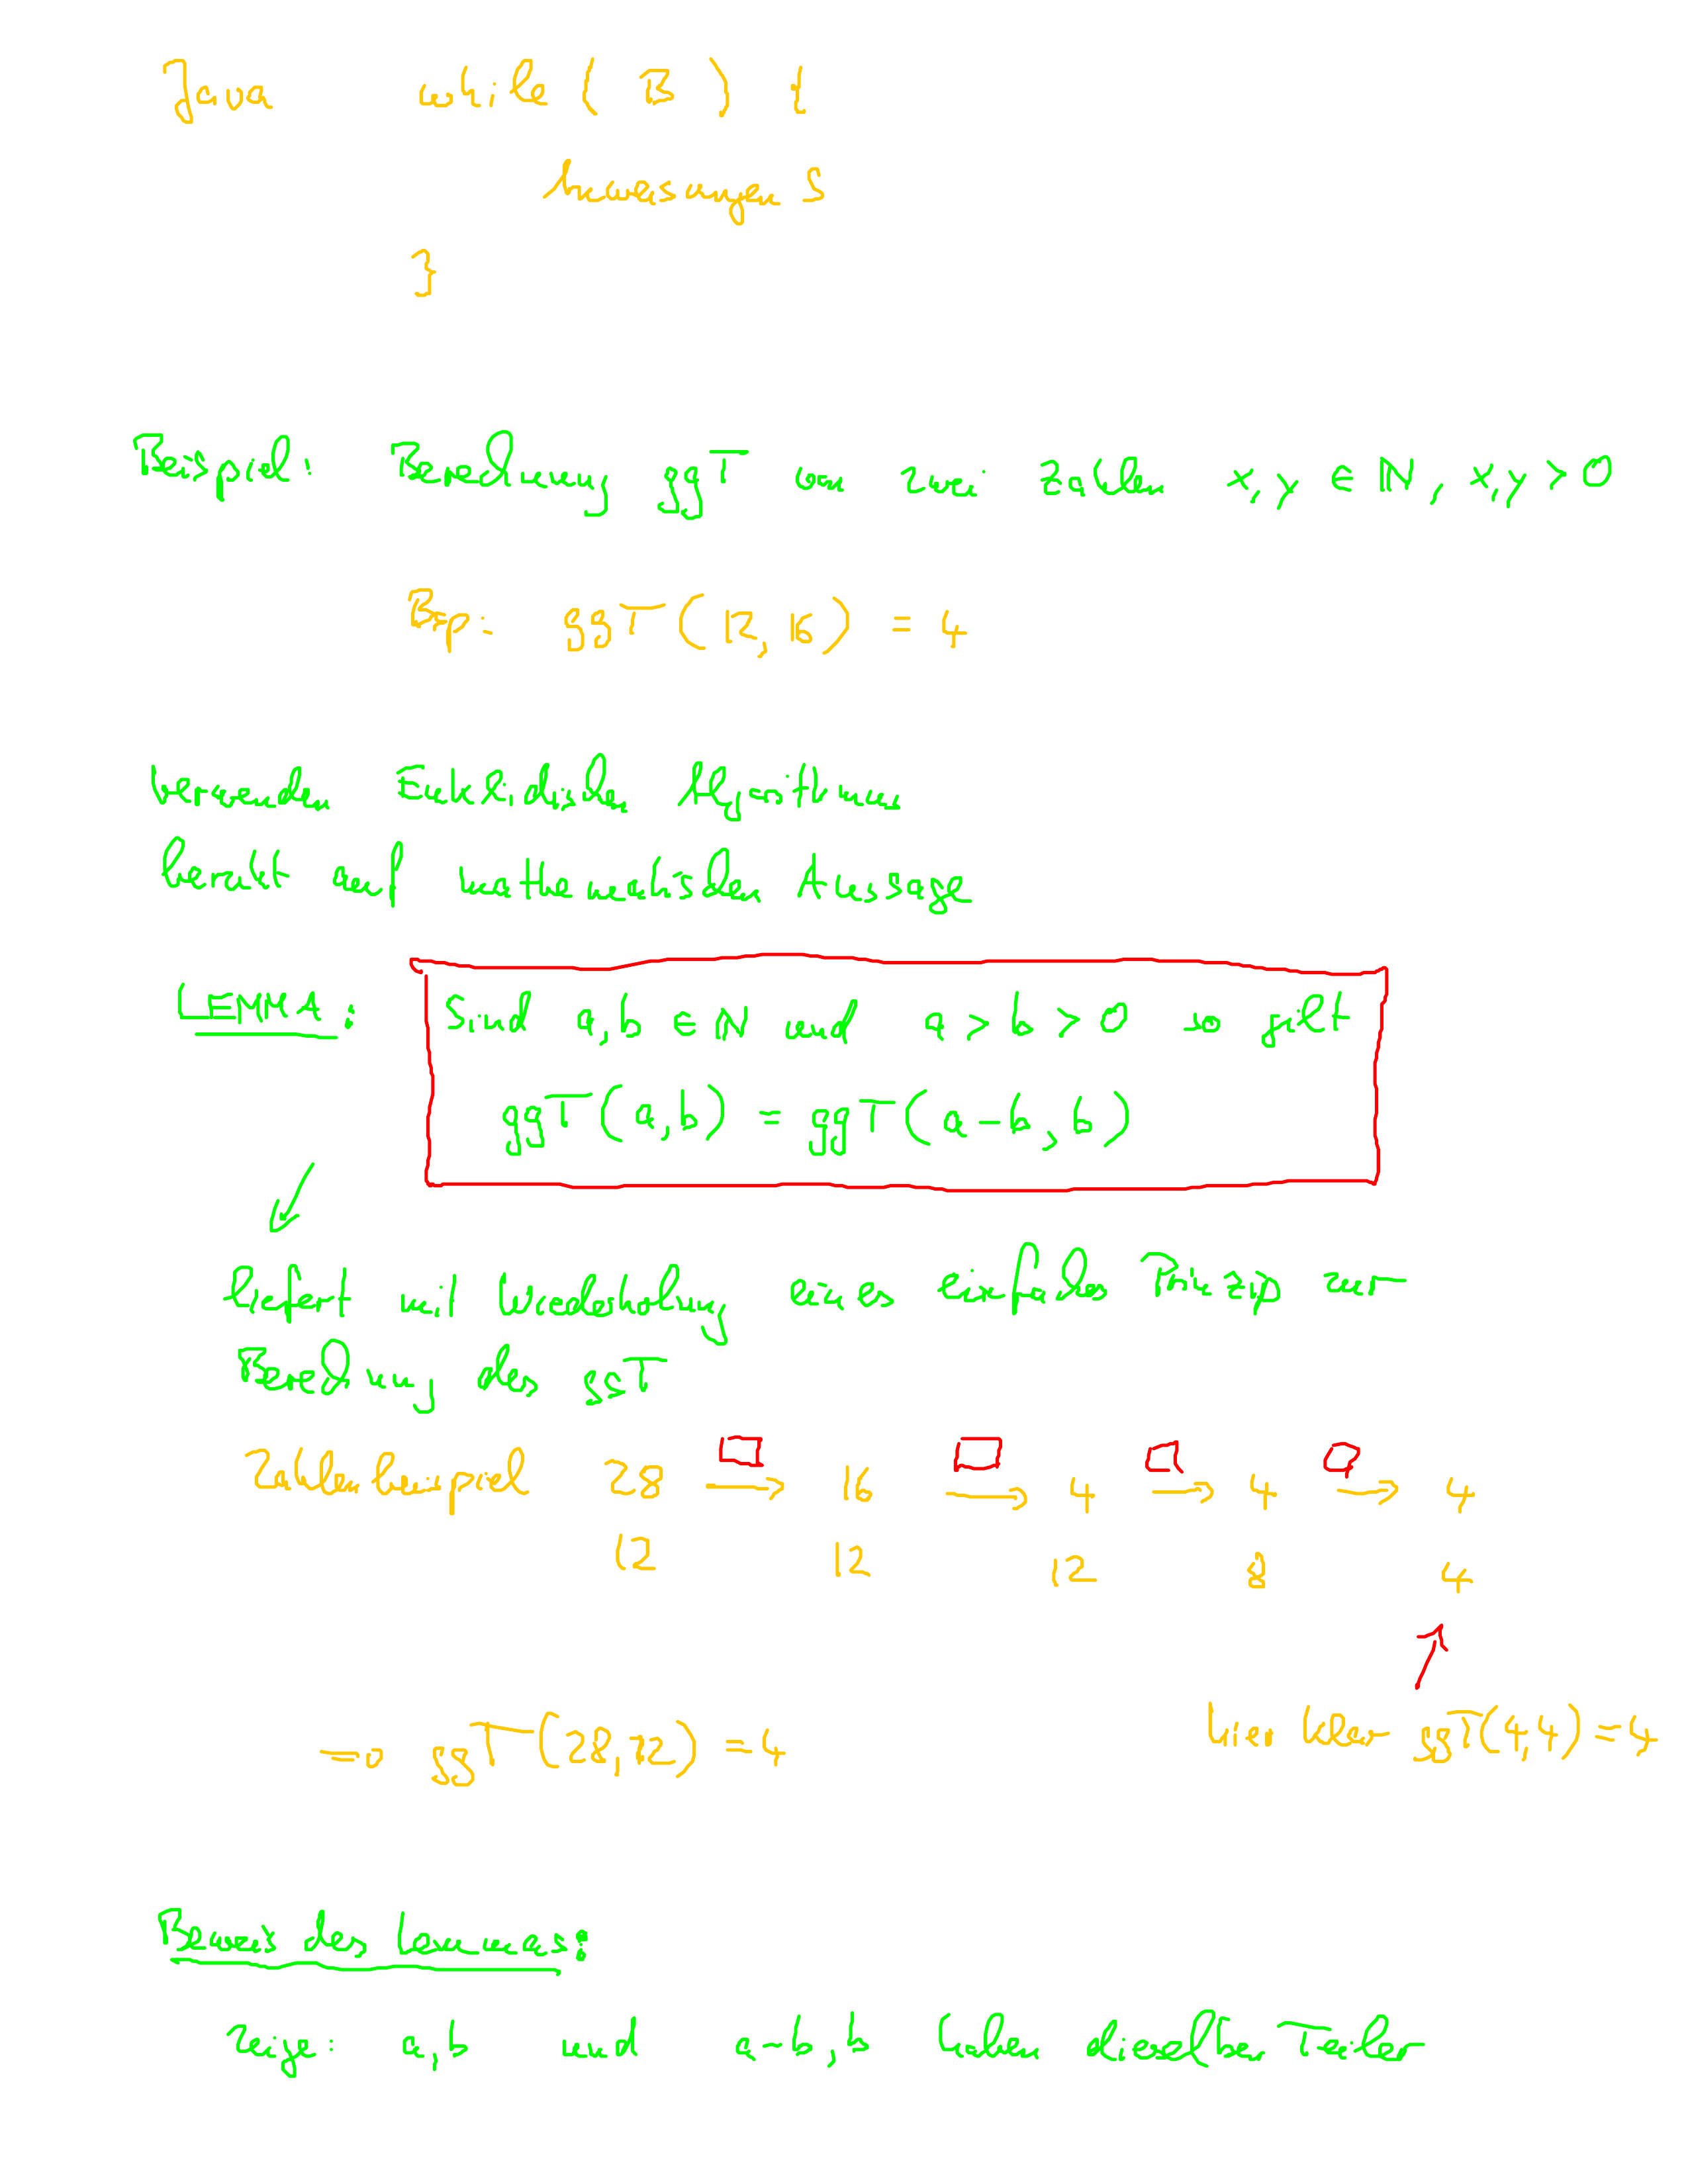 Java while ( B ) {
Anweisungen S
}
Beispiel: Berechnung ggT von zwei Zahlen x, y ∈ ℕ, x, y > 0
Bsp: ggT(12, 16) = 4
Verwenden Euklidischen Algorithmus
beruht auf mathematischen Aussage
LEMMA: Sind a, b ∈ ℕ und a > b > 0 so gilt
ggT(a, b) = ggT(a-b, b)
liefert mit Wiederholung eines einfaches Prinzip zur
Berechnung des ggT
Zahlenbeispiel 28 → 16 → 4 → 4 → 4
12 12 12 8 4
⇒ ggT(28, 12) = 4
hier klar ggT(4,4) = 4
Beweis des Lemmas:
Zeige: a, b und a-b, b haben dieselben Teiler